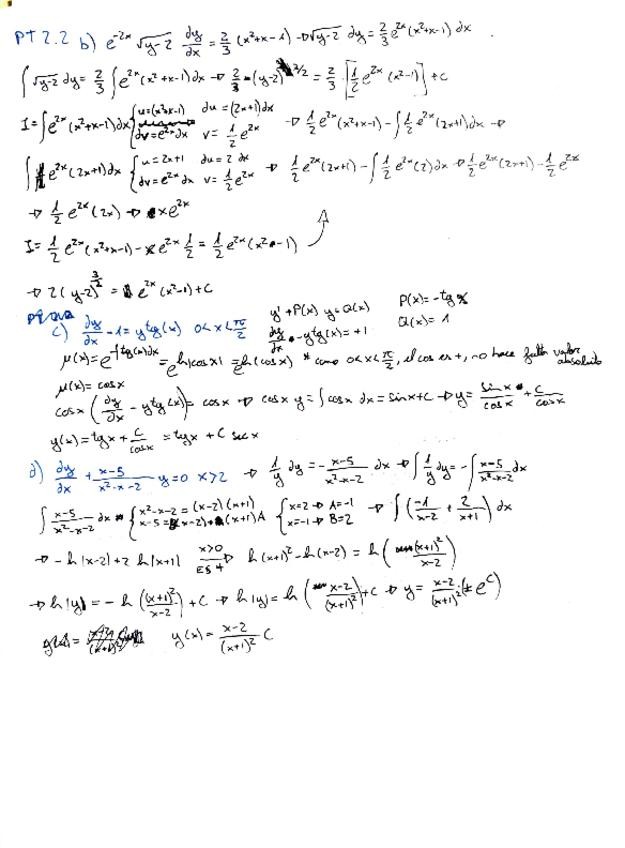 PT 2.2 b) e^{-2x} √(y-2) dy/dx = 2/3 (x²+x-1) → √(y-2) dy = 2/3 e^{2x} (x²+x-1) dx
∫ √(y-2) dy = 2/3 ∫ e^{2x} (x²+x-1) dx → 2/3 (y-2)^{3/2} = 2/3 [1/2 e^{2x} (x²-1)] + C
I = ∫ e^{2x} (x²+x-1) dx { u=(x²+x-1) du=(2x+1)dx dv=e^{2x}dx v=1/2 e^{2x} → 1/2 e^{2x}(x²+x-1) - ∫ 1/2 e^{2x}(2x+1)dx →
∫ e^{2x} (2x+1)dx { u=2x+1 du=2 dx dv=e^{2x}dx v=1/2 e^{2x} → 1/2 e^{2x}(2x+1) - ∫ 1/2 e^{2x}(2)dx → 1/2 e^{2x}(2x+1) - 1/2 e^{2x}
→ 1/2 e^{2x}(2x) → x e^{2x}
I = 1/2 e^{2x}(x²+x-1) - x e^{2x} 1/2 = 1/2 e^{2x}(x²-1)
→ 2(y-2)^{3/2} = e^{2x}(x²-1) + C
c) dy/dx - 1 = y tg(x) 0<x<π/2 y' + P(x) y = Q(x) P(x) = -tg x
dy/dx - y tg(x) = +1 Q(x) = 1
μ(x) = e^{-∫tg(x)dx} = e^{ln|cos x|} = e^{ln(cos x)} * como 0<x<π/2, el cos es +, no hace falta valor absoluto
μ(x) = cos x
cos x (dy/dx - y tg(x)) = cos x → cos x y = ∫ cos x dx = sin x + C → y = sin x/cos x + C/cos x
y(x) = tg x + C/cos x = tg x + C sec x
d) dy/dx + x-5/x²-x-2 y = 0 x>2 → 1/y dy = - x-5/x²-x-2 dx → ∫ 1/y dy = -∫ x-5/x²-x-2 dx
∫ x-5/x²-x-2 dx { x²-x-2 = (x-2)(x+1) x-5 = B(x-2)+(x+1)A { x=2 → A=-1 x=-1 → B=2 → ∫ (-1/x-2 + 2/x+1) dx
→ -ln|x-2| + 2 ln|x+1| x>0 ES + → ln(x+1)² - ln(x-2) = ln((x+1)²/x-2)
→ ln|y| = -ln((x+1)²/x-2) + C → ln|y| = ln(x-2/(x+1)²) + C → y = x-2/(x+1)² (±e^C)
y(x) = x-2/(x+1)² C